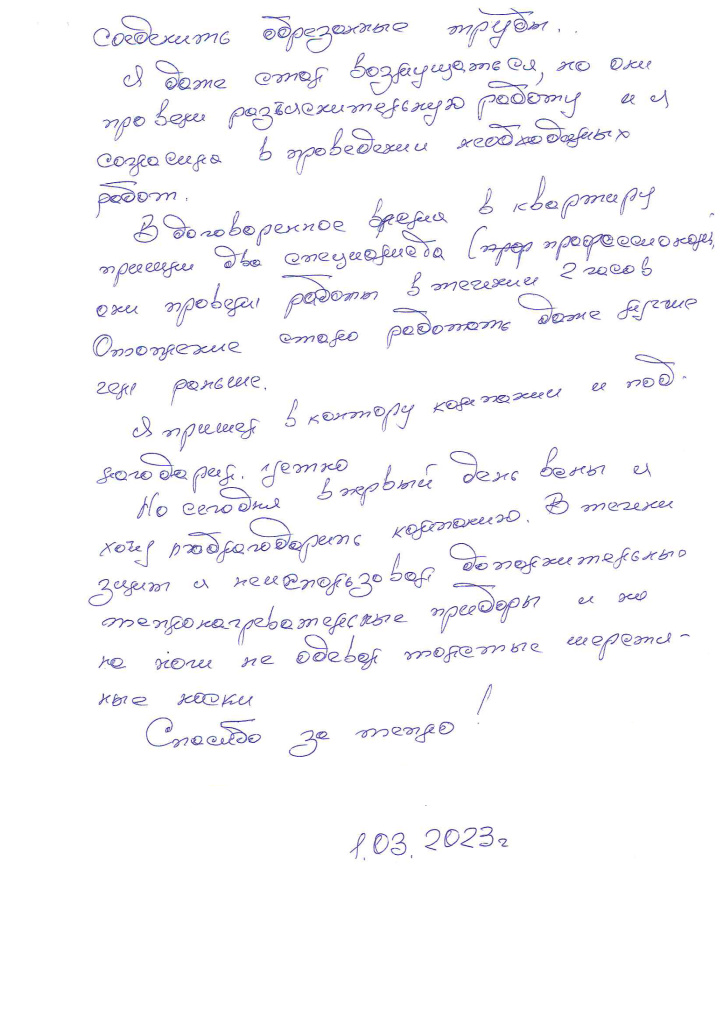 Соеденить обрезанные трубы..
Я даже стал возмущаться, но они
провели разъяснительную работу и я
согласился в проведении необходимых
работ.
В договоренное время в квартиру
пришли два специалиста (проф профессионалы,
они провели работы в течении 2 часов
Отопление стало работать даже лучше
чем раньше.
Я пришел в контору компании и поб-
лагодарил. устно
Но сегодня в первый день весны я
хочу поблагодарить компанию. В течени
зимы я неиспользовал дополнительно
теплонагревательные приборы и но
на ночи не одевал толстые шерстя-
ные носки
Спасибо за тепло!
1.03.2023г